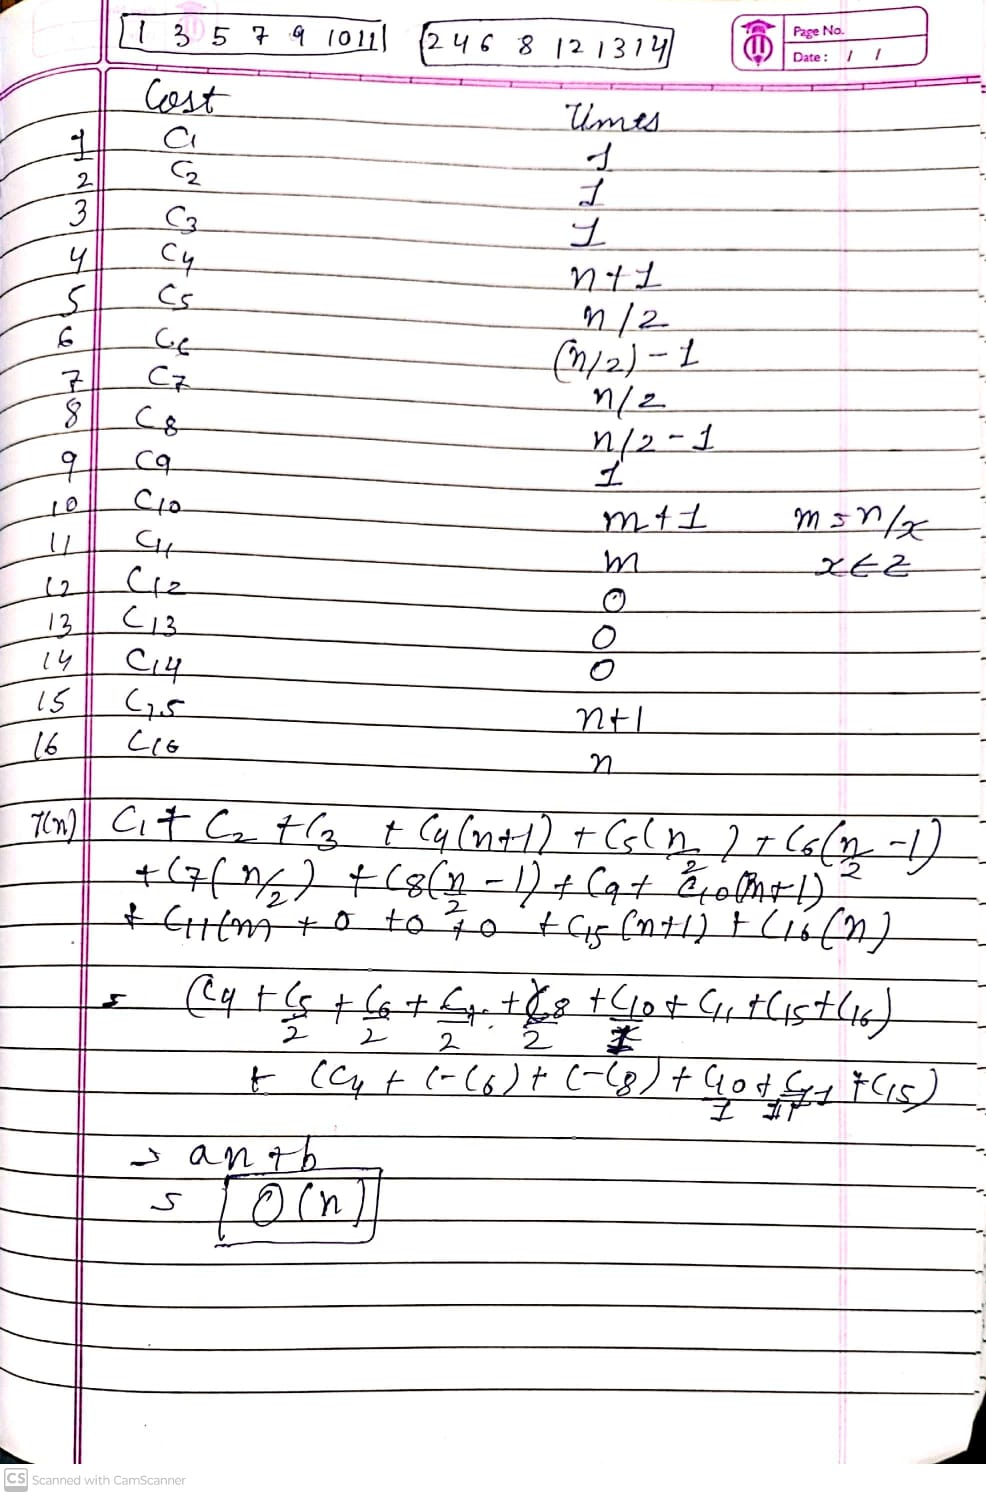 1 3 5 7 9 10 11 2 4 6 8 12 13 14
Page No.
Date : / /
Cost Times
1 C1 1
2 C2 1
3 C3 1
4 C4 n+1
5 C5 n/2
6 C6 (n/2)-1
7 C7 n/2
8 C8 n/2-1
9 C9 1
10 C10 m+1 m=n/x
11 C11 m x∈Z
12 C12 0
13 C13 0
14 C14 0
15 C15 n+1
16 C16 n
T(n) C1 + C2 + C3 + C4(n+1) + C5(n/2) + C6(n/2 -1)
+ C7(n/2) + C8(n/2 -1) + C9 + C10(m+1)
+ C11(m + 0 + 0 + 0 + C15(n+1) + C16(n)
= (C4 + C5/2 + C6/2 + C7/2 + C8/2 + C10 + C11 + C15 + C16)
+ (C4 + (-C6) + (-C8) + C10/1 + + C15)
= an+b
= O(n)
CS Scanned with CamScanner